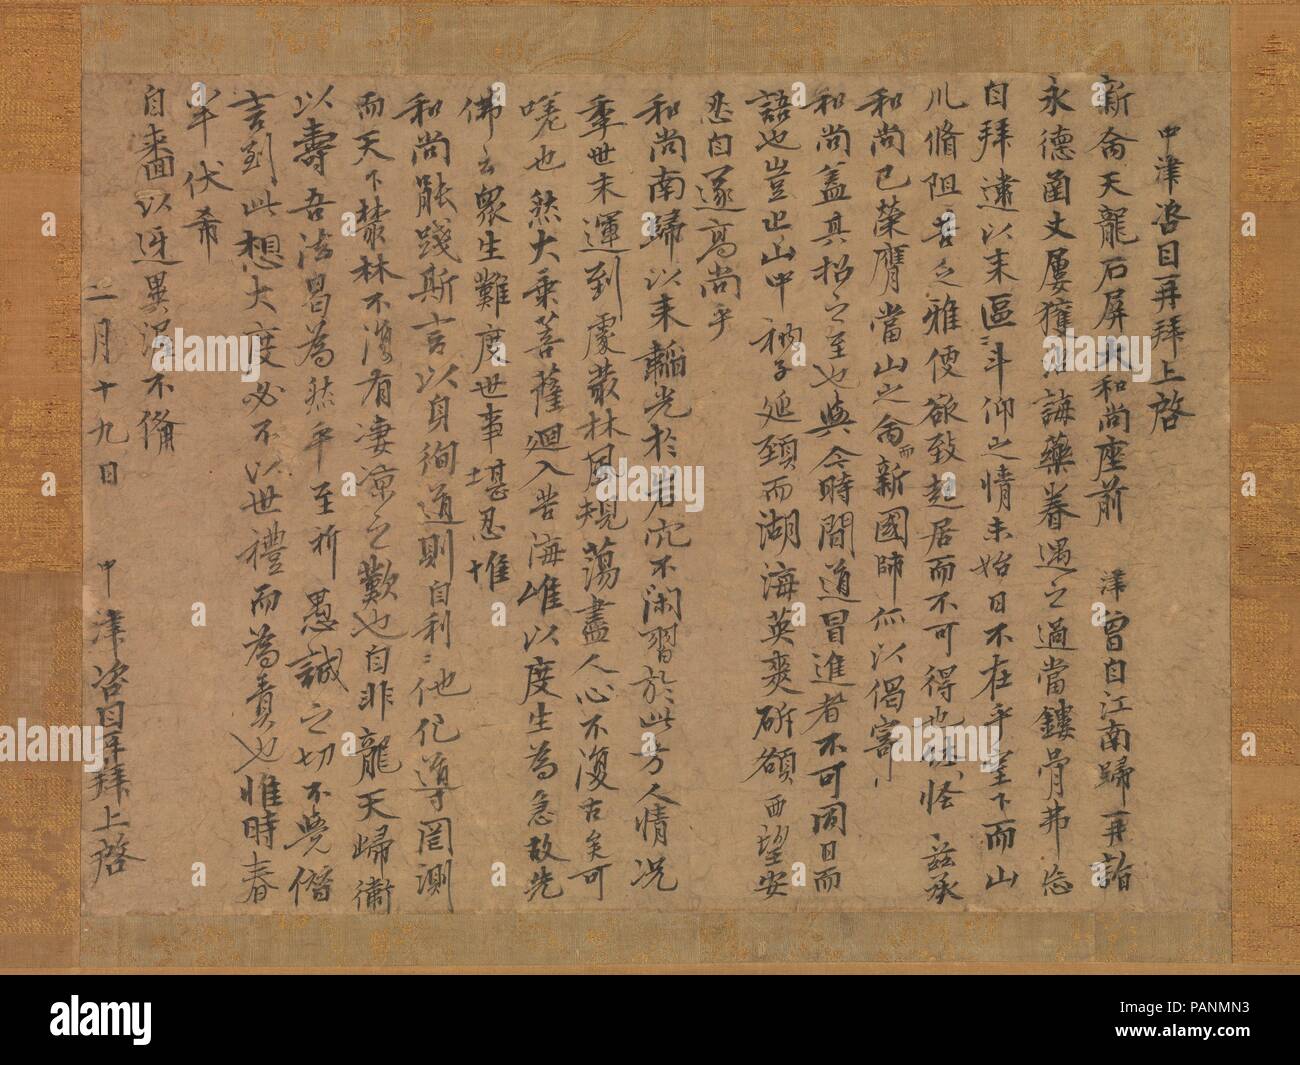 中津咨目再拜上啓
新命天龍石屏大和尚座前 津曾自江南歸再詣
永德函丈屢獲 誨藥眷遇之過當鏤骨弗忘
自拜違以來區々斗仰之情未始日不在乎座下而山
川脩阻音之雅便欲致起居而不可得也 茲承
和尚已榮膺當山之命而新國師 以偈寄
和尚蓋其招之至也與今時間道冒進者不可同日而
語也豈止山中衲子延頸而湖海英爽斫額西望安
忍自遂高尚乎
和尚南歸以來韜光於岩穴不閑習於此方人情況
季世末運到處叢林風規蕩盡人心不復古矣可
嗟也然大乘菩薩迴入苦海唯以度生為急故先
佛云眾生難度世事堪忍惟
和尚能踐斯言以身徇道則自利々他化導罔測
而天下叢林不復有凄涼之歎也自非龍天歸衛
以壽吾法曷為然乎至祈愚誠之切不覺僭
言到此想大度必不以世禮而為責也惟時春
半伏希
自來面以迓異渥不備
二月十九日 中津咨目再拜上啓
alamy
a
alamy
Image ID: PANMN3
www.alamy.com